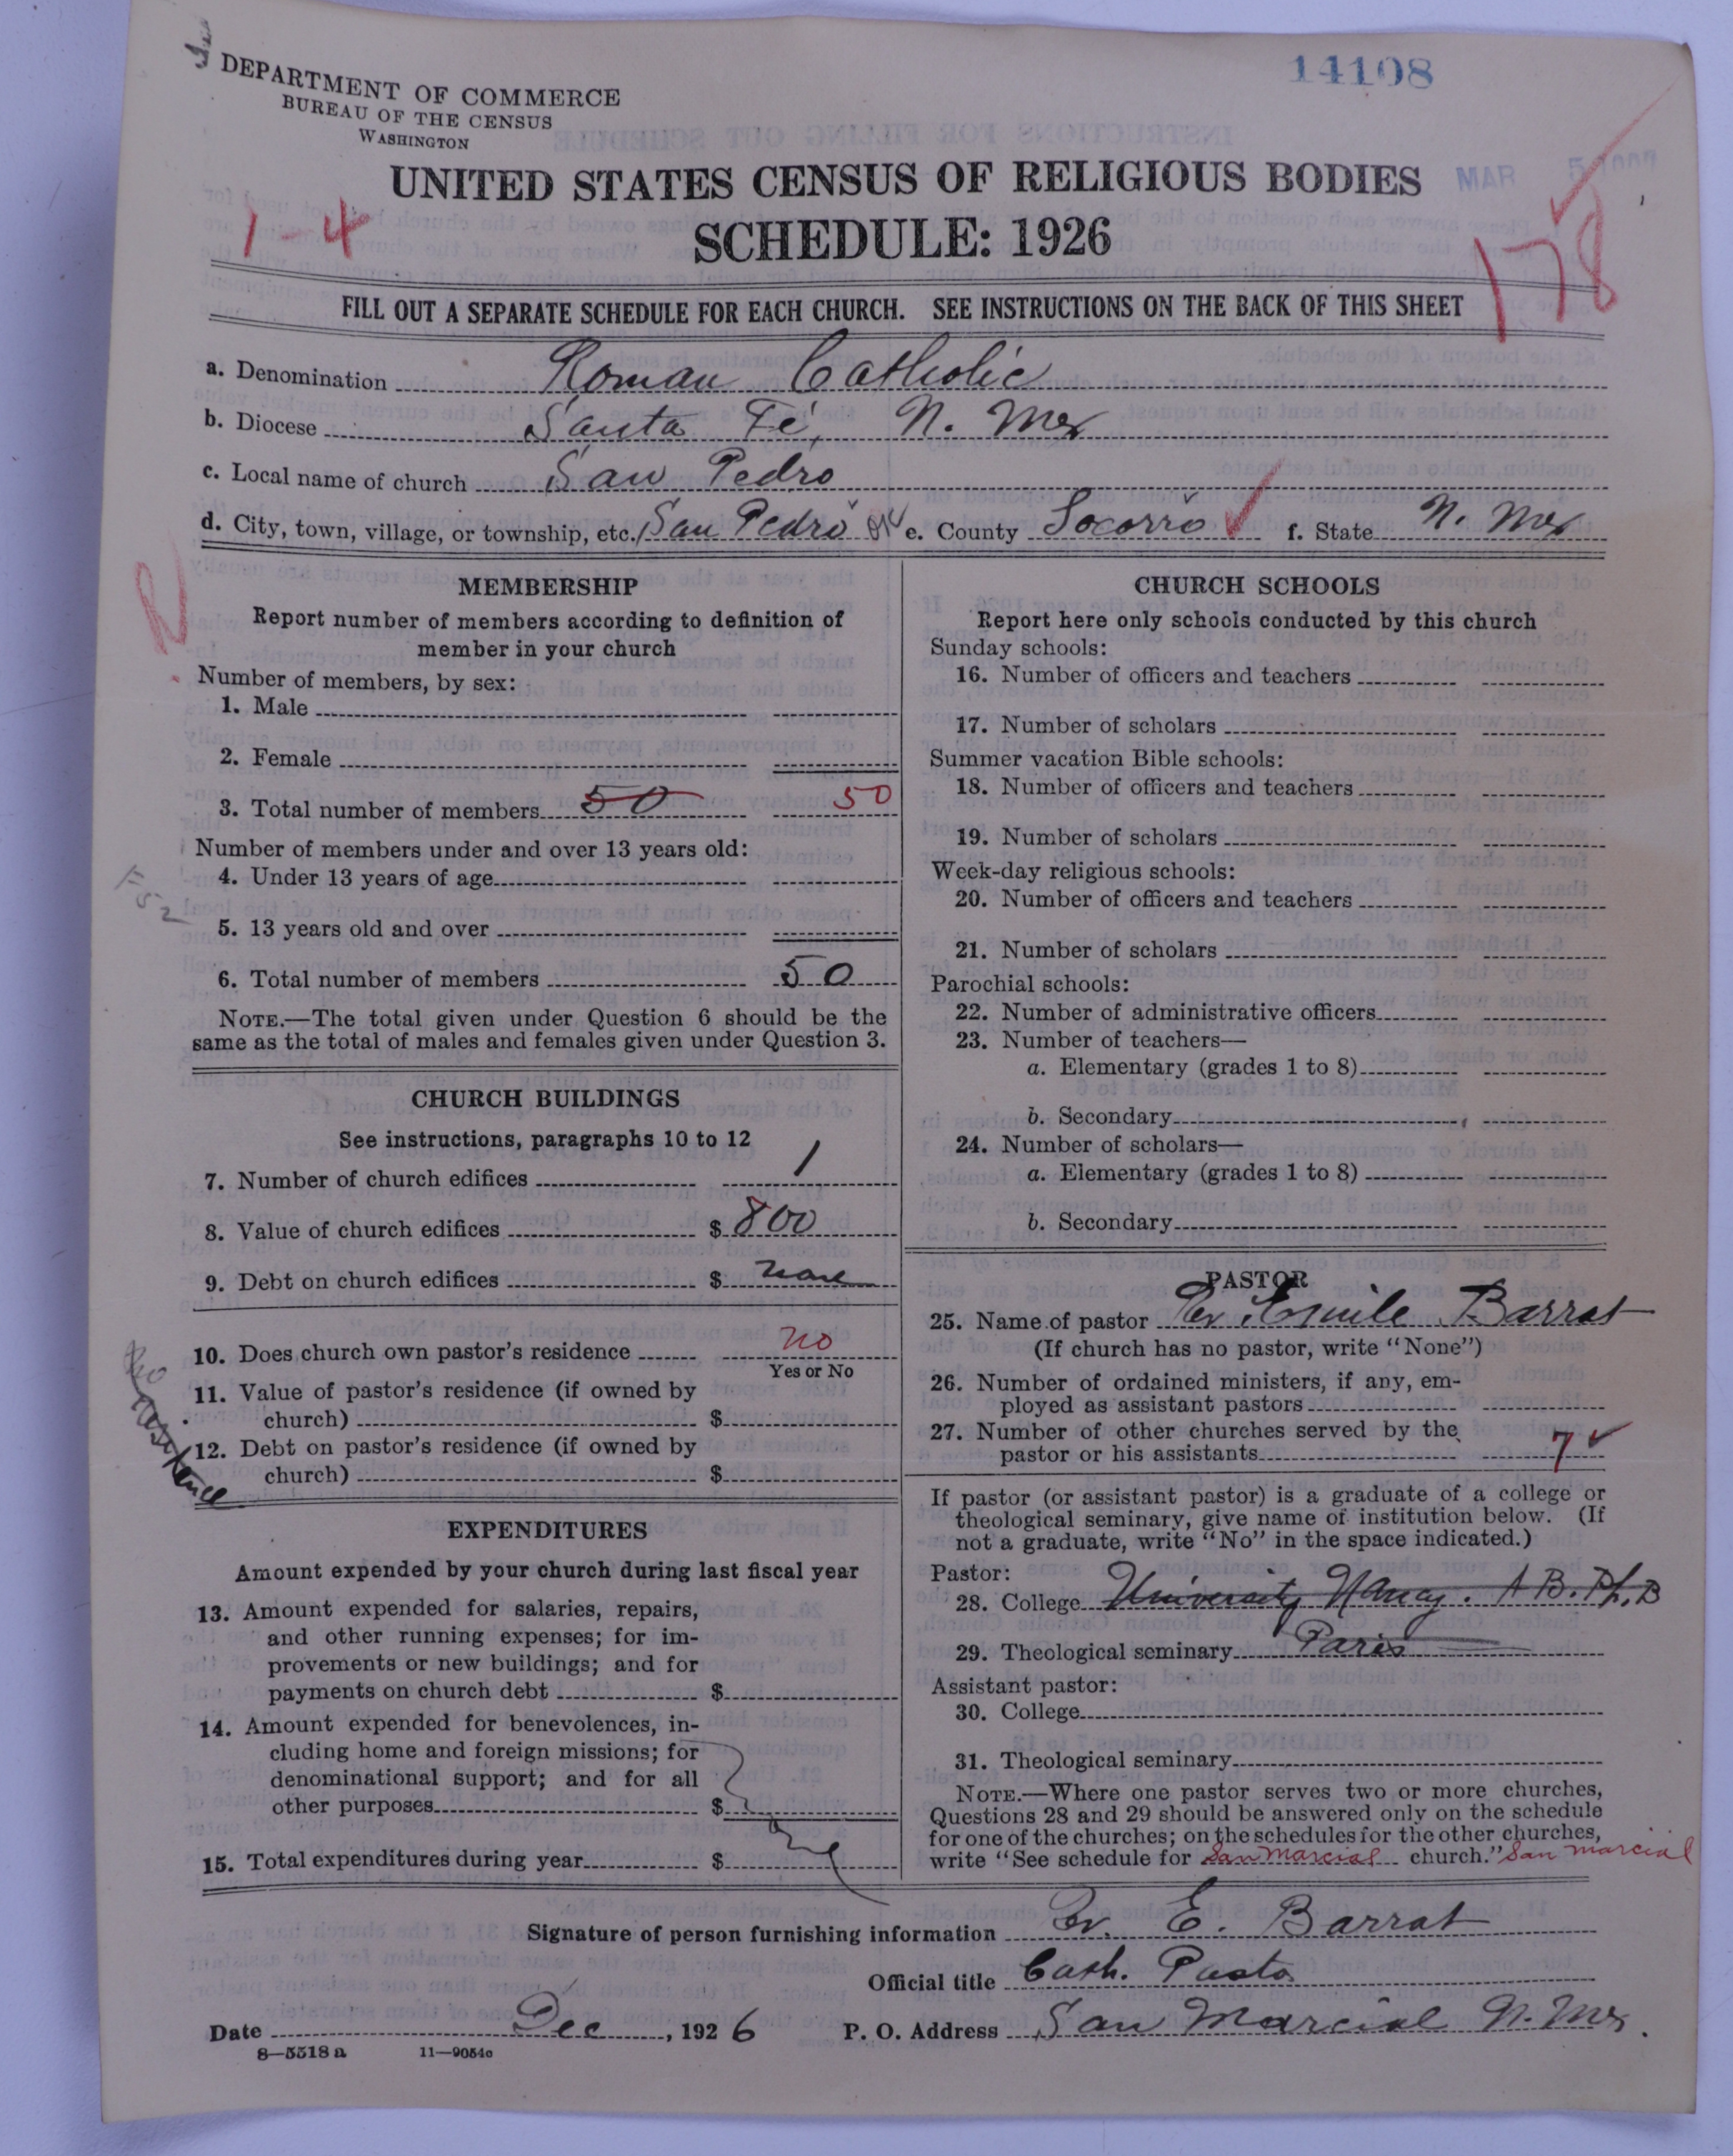 14108
DEPARTMENT OF COMMERCE
BUREAU OF THE CENSUS
WASHINGTON
UNITED STATES CENSUS OF RELIGIOUS BODIES
MAR 5
1-4
SCHEDULE: 1926
178
FILL OUT A SEPARATE SCHEDULE FOR EACH CHURCH. SEE INSTRUCTIONS ON THE BACK OF THIS SHEET
a. Denomination Roman Catholic
b. Diocese Santa Fé, N. Mex
c. Local name of church San Pedro
d. City, town, village, or township, etc. San Pedro OK e. County Socorro ✓ f. State N. Mex
MEMBERSHIP
Report number of members according to definition of
member in your church
Number of members, by sex:
1. Male
2. Female
3. Total number of members 50 50
Number of members under and over 13 years old:
4. Under 13 years of age
5. 13 years old and over
6. Total number of members 50
NOTE.—The total given under Question 6 should be the
same as the total of males and females given under Question 3.
CHURCH BUILDINGS
See instructions, paragraphs 10 to 12
7. Number of church edifices 1
8. Value of church edifices $ 800
9. Debt on church edifices $ none
10. Does church own pastor's residence no
Yes or No
11. Value of pastor's residence (if owned by
church) $
12. Debt on pastor's residence (if owned by
church) $
No residence
EXPENDITURES
Amount expended by your church during last fiscal year
13. Amount expended for salaries, repairs,
and other running expenses; for im-
provements or new buildings; and for
payments on church debt $
14. Amount expended for benevolences, in-
cluding home and foreign missions; for
denominational support; and for all
other purposes $
15. Total expenditures during year $
CHURCH SCHOOLS
Report here only schools conducted by this church
Sunday schools:
16. Number of officers and teachers
17. Number of scholars
Summer vacation Bible schools:
18. Number of officers and teachers
19. Number of scholars
Week-day religious schools:
20. Number of officers and teachers
21. Number of scholars
Parochial schools:
22. Number of administrative officers
23. Number of teachers—
a. Elementary (grades 1 to 8)
b. Secondary
24. Number of scholars—
a. Elementary (grades 1 to 8)
b. Secondary
PASTOR
25. Name of pastor Rev. Emile Barrat
(If church has no pastor, write "None")
26. Number of ordained ministers, if any, em-
ployed as assistant pastors
27. Number of other churches served by the
pastor or his assistants 7 ✓
If pastor (or assistant pastor) is a graduate of a college or
theological seminary, give name of institution below. (If
not a graduate, write "No" in the space indicated.)
Pastor:
28. College University Nancy. A B. Ph. B
29. Theological seminary Paris
Assistant pastor:
30. College
31. Theological seminary
NOTE.—Where one pastor serves two or more churches,
Questions 28 and 29 should be answered only on the schedule
for one of the churches; on the schedules for the other churches,
write "See schedule for San Marcial church." San Marcial
Signature of person furnishing information Rev. E. Barrat
Official title Cath. Pastor
Date Dec, 1926 P. O. Address San Marcial N. Mex.
8—5518 a 11—9054c